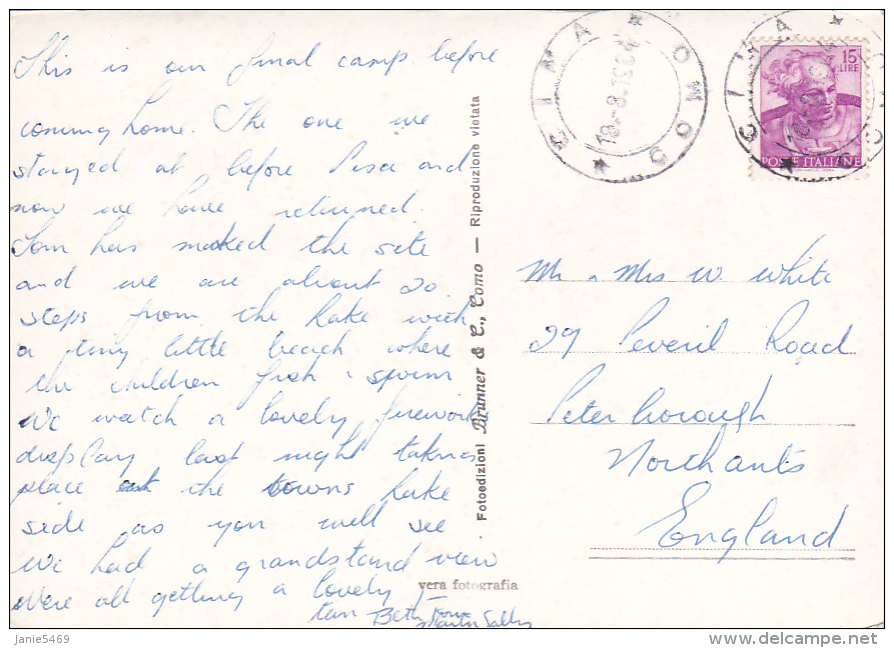 This is our final camp before
coming home. The one we
stayed at before Pisa and
now we have returned.
Tom has maked the site
and we are about 20
steps from the Lake with
a tiny little beach where
the children fish & swim
We watch a lovely fireworks
display last night taking
place at the towns lake
side as you will see
We had a grandstand view
Were all getting a lovely
tan Beth Tom
Martin Sally
Fotoedizioni Brunner & C., Como — Riproduzione vietata
vera fotografia
CIMA * COMO *
18.-8.196
15 LIRE
POSTE ITALIANE
Mr & Mrs W. White
29 Peveril Road
Peterborough
Northants
England
Janie5469